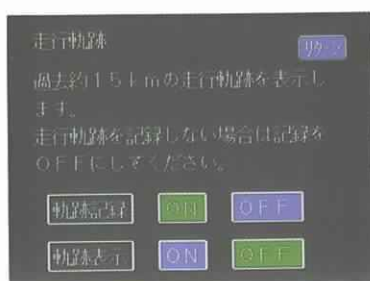 走行軌跡
リターン
過去約15kmの走行軌跡を表示し
ます。
走行軌跡を記録しない場合は記録を
OFFにしてください。
軌跡記録 ON OFF
軌跡表示 ON OFF